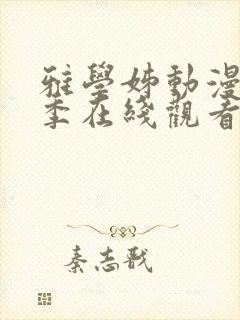 雅學姊動漫
季在綫觀看
秦志戬